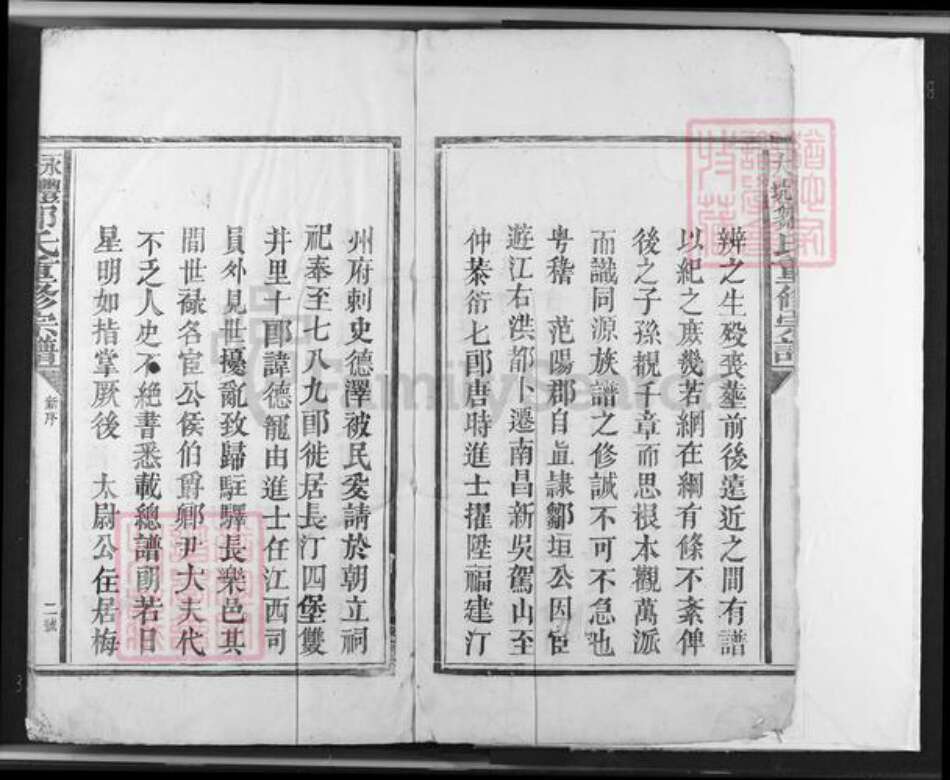 辨之生殁喪塟前後遠近之間有譜
以紀之庻幾若網在綱有條不紊俾
後之子孫覩千章而思根本觀萬派
而識同源族譜之修誠不可不急也
粤稽 范陽郡自直隷鄒垣公因宦
遊江右洪都卜遷南昌新吳駕山至
仲恭衍七郎唐時進士擢陞福建汀
州府刺史德澤被民爰請於朝立祠
祀奉至七八九郎徙居長汀四堡雙
井里十郎諱德寵由進士任江西司
員外見世擾亂致歸駐驛長樂邑其
間世祿各宦公侯伯爵卿尹大夫代
不乏人史不絕書悉載總譜朗若日
星明如指掌厥後 太尉公住居梅
氏重修宗譜
新序
二號
FamilySearch